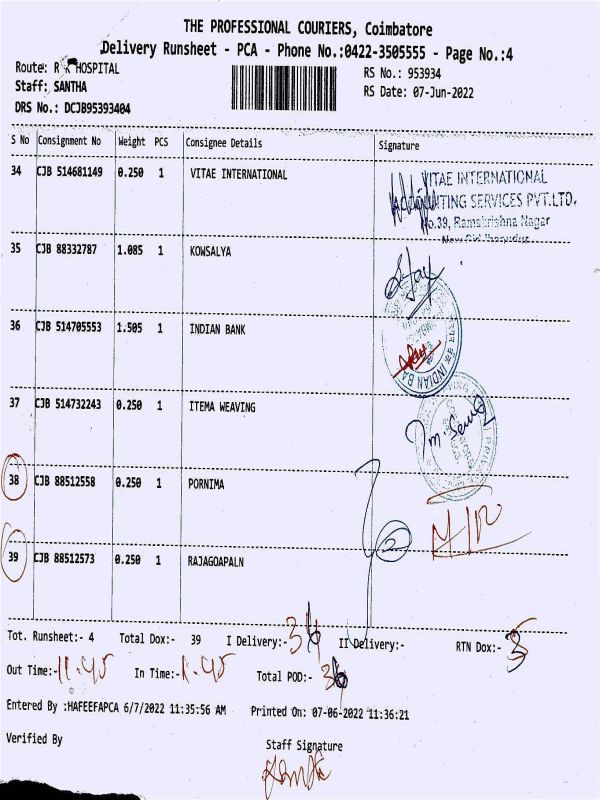 THE PROFESSIONAL COURIERS, Coimbatore
Delivery Runsheet - PCA - Phone No.:0422-3505555 - Page No.:4
Route: R K HOSPITAL
RS No.: 953934
Staff: SANTHA
RS Date: 07-Jun-2022
DRS No.: DCJB95393404
S No Consignment No Weight PCS Consignee Details Signature
34 CJB 514681149 0.250 1 VITAE INTERNATIONAL
VITAE INTERNATIONAL
SERVICES PVT.LTD.
No.39, Ramakrishna Nagar
35 CJB 88332787 1.085 1 KOWSALYA
36 CJB 514705553 1.505 1 INDIAN BANK
INDIAN BA
37 CJB 514732243 0.250 1 ITEMA WEAVING
38 CJB 88512558 0.250 1 PORNIMA
39 CJB 88512573 0.250 1 RAJAGOAPALN
Tot. Runsheet:- 4 Total Dox:- 39 I Delivery:- II Delivery:- RTN Dox:-
Out Time:- 11.45 In Time:- 1.45 Total POD:-
Entered By :HAFEEFAPCA 6/7/2022 11:35:56 AM Printed On: 07-06-2022 11:36:21
Verified By Staff Signature